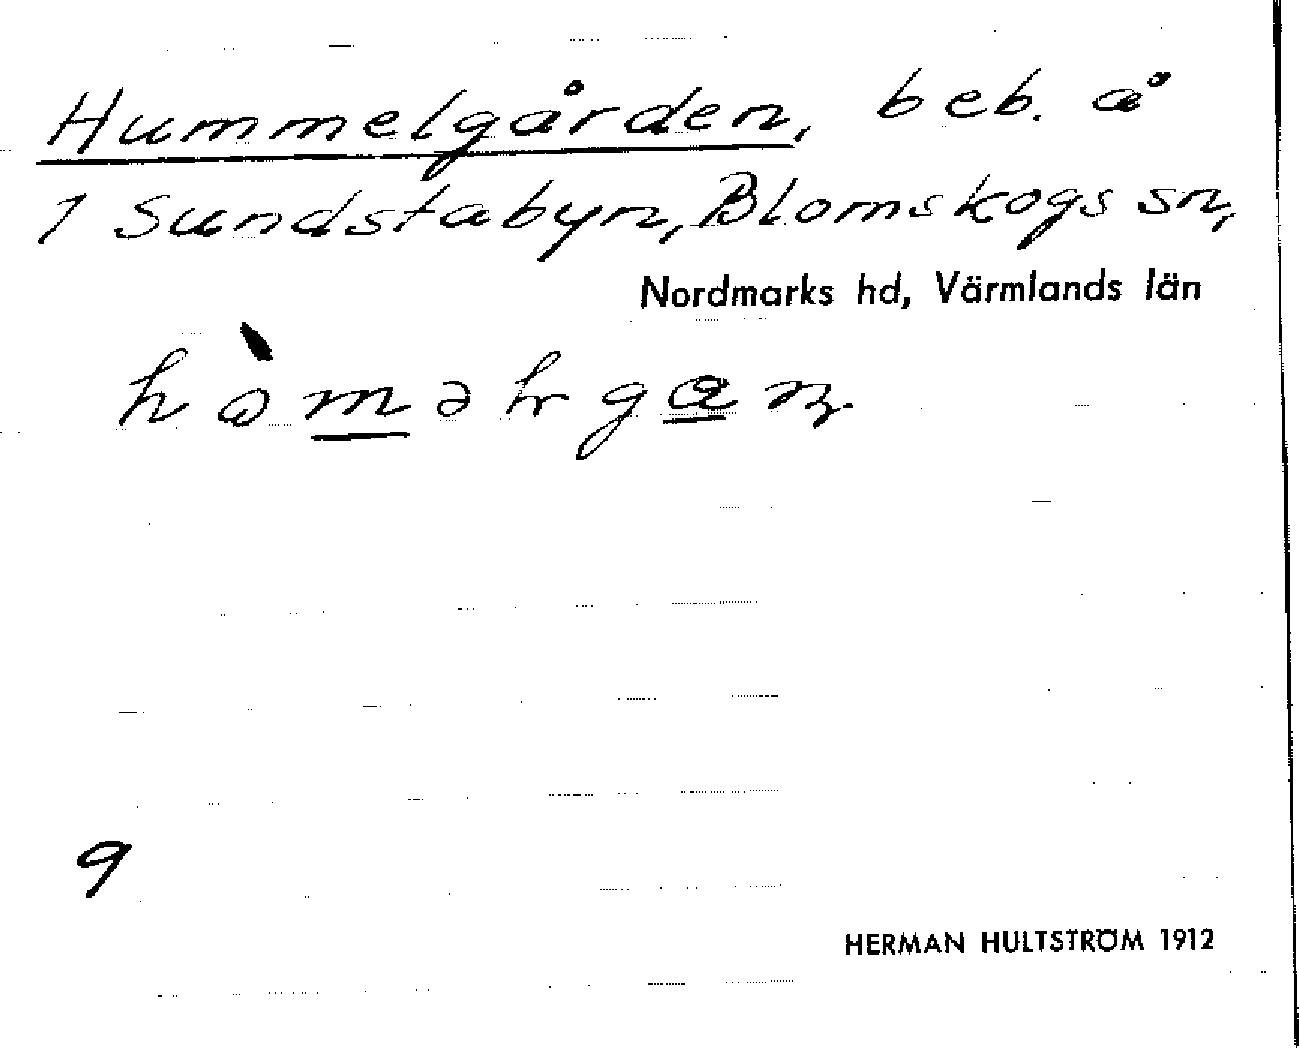 Hummelgården, beb. å
1 Sundstabyn, Blomskogs sn,
Nordmarks hd, Värmlands län
9
HERMAN HULTSTRÖM 1912